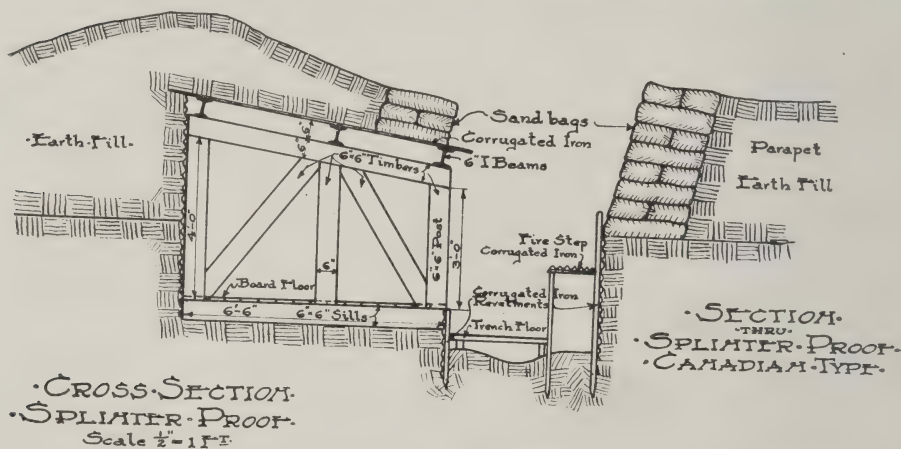 Sand bags
Corrugated Iron
6" I Beams
·Earth·Fill·
6"×6"
6"×6" Timbers
Parapet
Earth Fill
4'-0"
6"
6"×6" Post
3'-0"
Fire Step
Corrugated Iron
Board Floor
Corrugated Iron
Revetments
6'-6"
6"×6" Sills
Trench Floor
·SECTION·
·THRU·
·SPLINTER·PROOF·
·CANADIAN·TYPE·
·CROSS·SECTION·
·SPLINTER·PROOF·
Scale ½" = 1 FT.